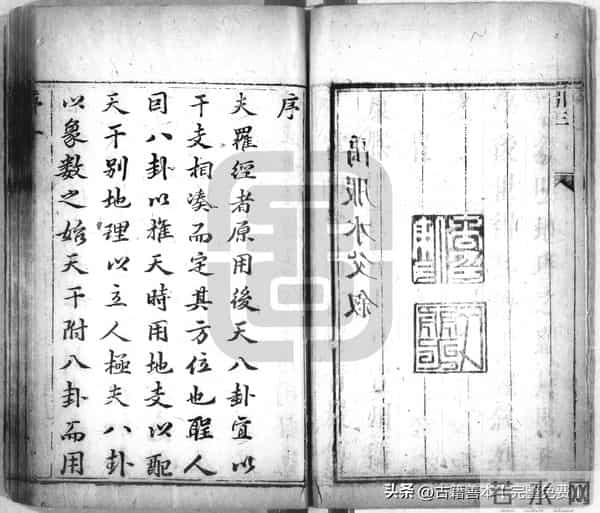 序
夫羅經者原用後天八卦宜以
干支相湊而定其方位也聖人
囙八卦以推天時用地支以配
天干別地理以立人極夫八卦
以象數之始天干附八卦而用
头条 @古籍善本